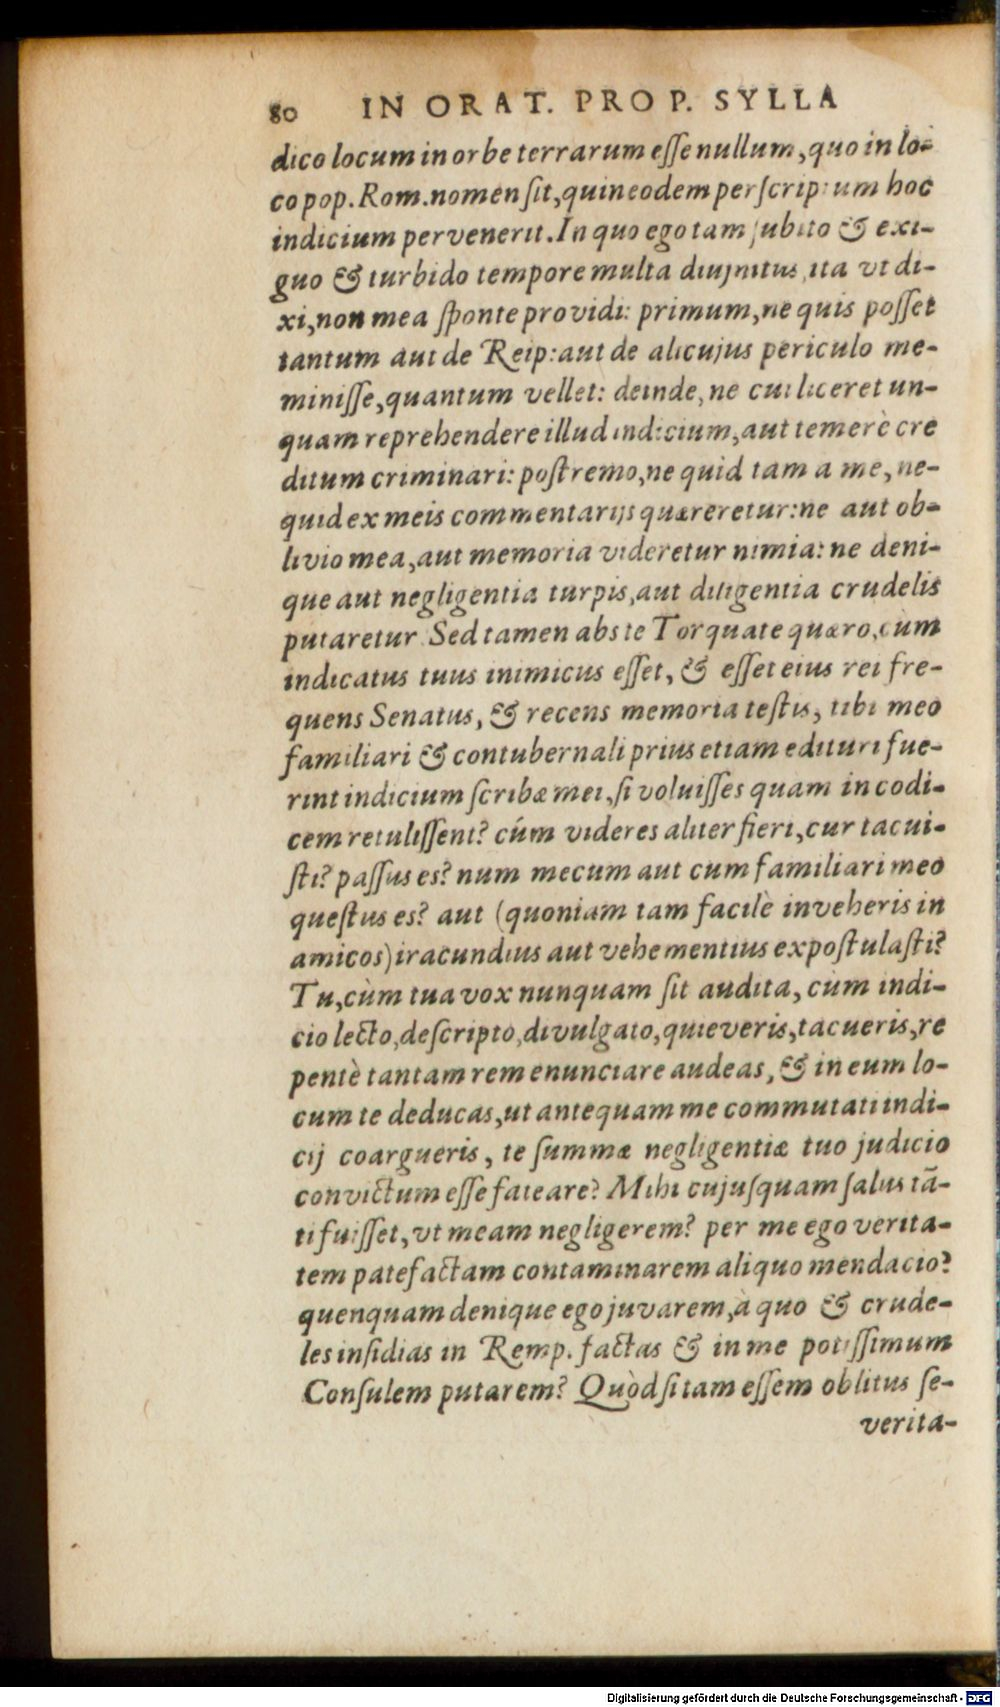 80 IN ORAT. PROP. SYLLA
dico locum in orbe terrarum eſſe nullum, quo in lo-
co pop. Rom. nomen ſit, quin eodem perſcriptum hoc
indicium pervenerit. In quo ego tam ſubito & exi-
guo & turbido tempore multa diuinitus, ita vt di-
xi, non mea ſponte providi: primum, ne quis poſſet
tantum aut de Reip: aut de alicujus periculo me-
miniſſe, quantum vellet: deinde, ne cui liceret un-
quam reprehendere illud indicium, aut temerè cre
ditum criminari: poſtremo, ne quid tam a me, ne-
quid ex meis commentarijs quæreretur: ne aut ob-
livio mea, aut memoria videretur nimia: ne deni-
que aut negligentia turpis, aut diligentia crudelis
putaretur Sed tamen abs te Torquate quæro, cùm
indicatus tuus inimicus eſſet, & eſſet eius rei fre-
quens Senatus, & recens memoria teſtis, tibi meo
familiari & contubernali prius etiam edituri fue-
rint indicium ſcribæ mei, ſi voluiſſes quam in codi-
cem retuliſſent? cúm videres aliter fieri, cur tacui-
ſti? paſſus es? num mecum aut cum familiari meo
queſtus es? aut (quoniam tam facilè inveheris in
amicos) iracundius aut vehementius expoſtulaſti?
Tu, cùm tua vox nunquam ſit audita, cùm indi-
cio lecto, deſcripto, divulgato, quieveris, tacueris, re
pentè tantam rem enunciare audeas, & in eum lo-
cum te deducas, ut antequam me commutati indi-
cij coargueris, te ſummæ negligentiæ tuo judicio
convictum eſſe fateare? Mihi cujuſquam ſalus tā-
ti fuiſſet, vt meam negligerem? per me ego verita-
tem patefactam contaminarem aliquo mendacio?
quenquam denique ego juvarem, à quo & crude-
les inſidias in Remp. factas & in me potiſſimum
Conſulem putarem? Quòd ſi tam eſſem oblitus ſe-
verita-
Digitalisierung gefördert durch die Deutsche Forschungsgemeinschaft - DFG